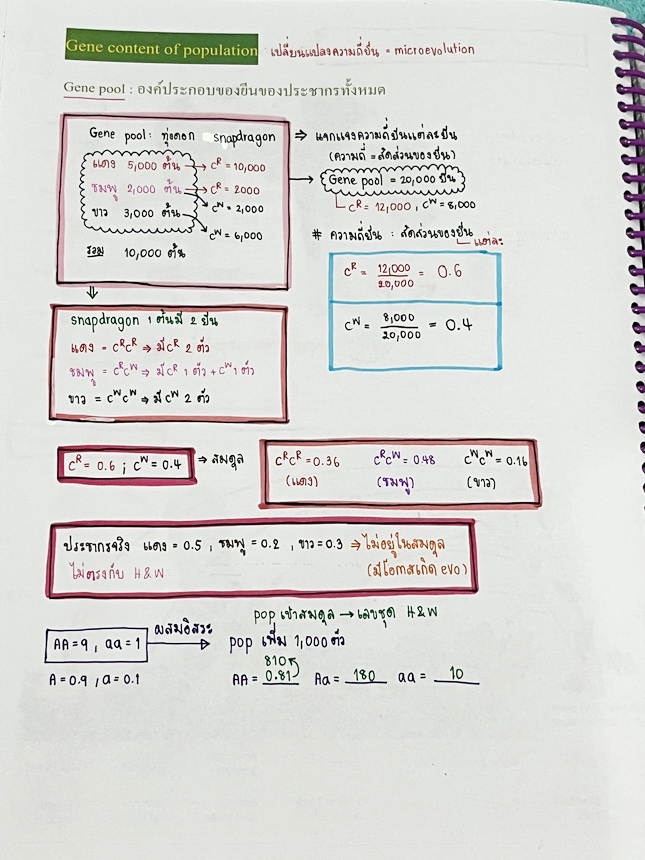 Gene content of population เปลี่ยนแปลงความถี่ยีน = microevolution
Gene pool : องค์ประกอบของยีนของประชากรทั้งหมด
Gene pool: ทุ่งดอก snapdragon
แดง 5,000 ต้น → Cᴿ = 10,000
ชมพู 2,000 ต้น → Cᴿ = 2000
Cᵂ = 2,000
ขาว 3,000 ต้น
Cᵂ = 6,000
รวม 10,000 ต้น
⇒ แจกแจงความถี่ยีนแต่ละยีน
(ความถี่ = สัดส่วนของยีน)
Gene pool = 20,000 ยีน
Cᴿ = 12,000 , Cᵂ = 8,000
# ความถี่ยีน : สัดส่วนของยีน
แต่ละ
Cᴿ = 12,000/20,000 = 0.6
Cᵂ = 8,000/20,000 = 0.4
snapdragon 1 ต้นมี 2 ยีน
แดง = CᴿCᴿ ⇒ มี Cᴿ 2 ตัว
ชมพู = CᴿCᵂ ⇒ มี Cᴿ 1 ตัว + Cᵂ 1 ตัว
ขาว = CᵂCᵂ ⇒ มี Cᵂ 2 ตัว
Cᴿ = 0.6 ; Cᵂ = 0.4 ⇒ สมดุล
CᴿCᴿ = 0.36 CᴿCᵂ = 0.48 CᵂCᵂ = 0.16
(แดง) (ชมพู) (ขาว)
ประชากรจริง แดง = 0.5 , ชมพู = 0.2 , ขาว = 0.3 ⇒ ไม่อยู่ในสมดุล
ไม่ตรงกับ H&W (มีโอกาสเกิด evo)
pop เข้าสมดุล → เลขชุด H&W
AA = 9 , aa = 1 ผสมอิสระ → pop เพิ่ม 1,000 ตัว
810
A = 0.9 , a = 0.1 AA = 0.81 Aa = 180 aa = 10